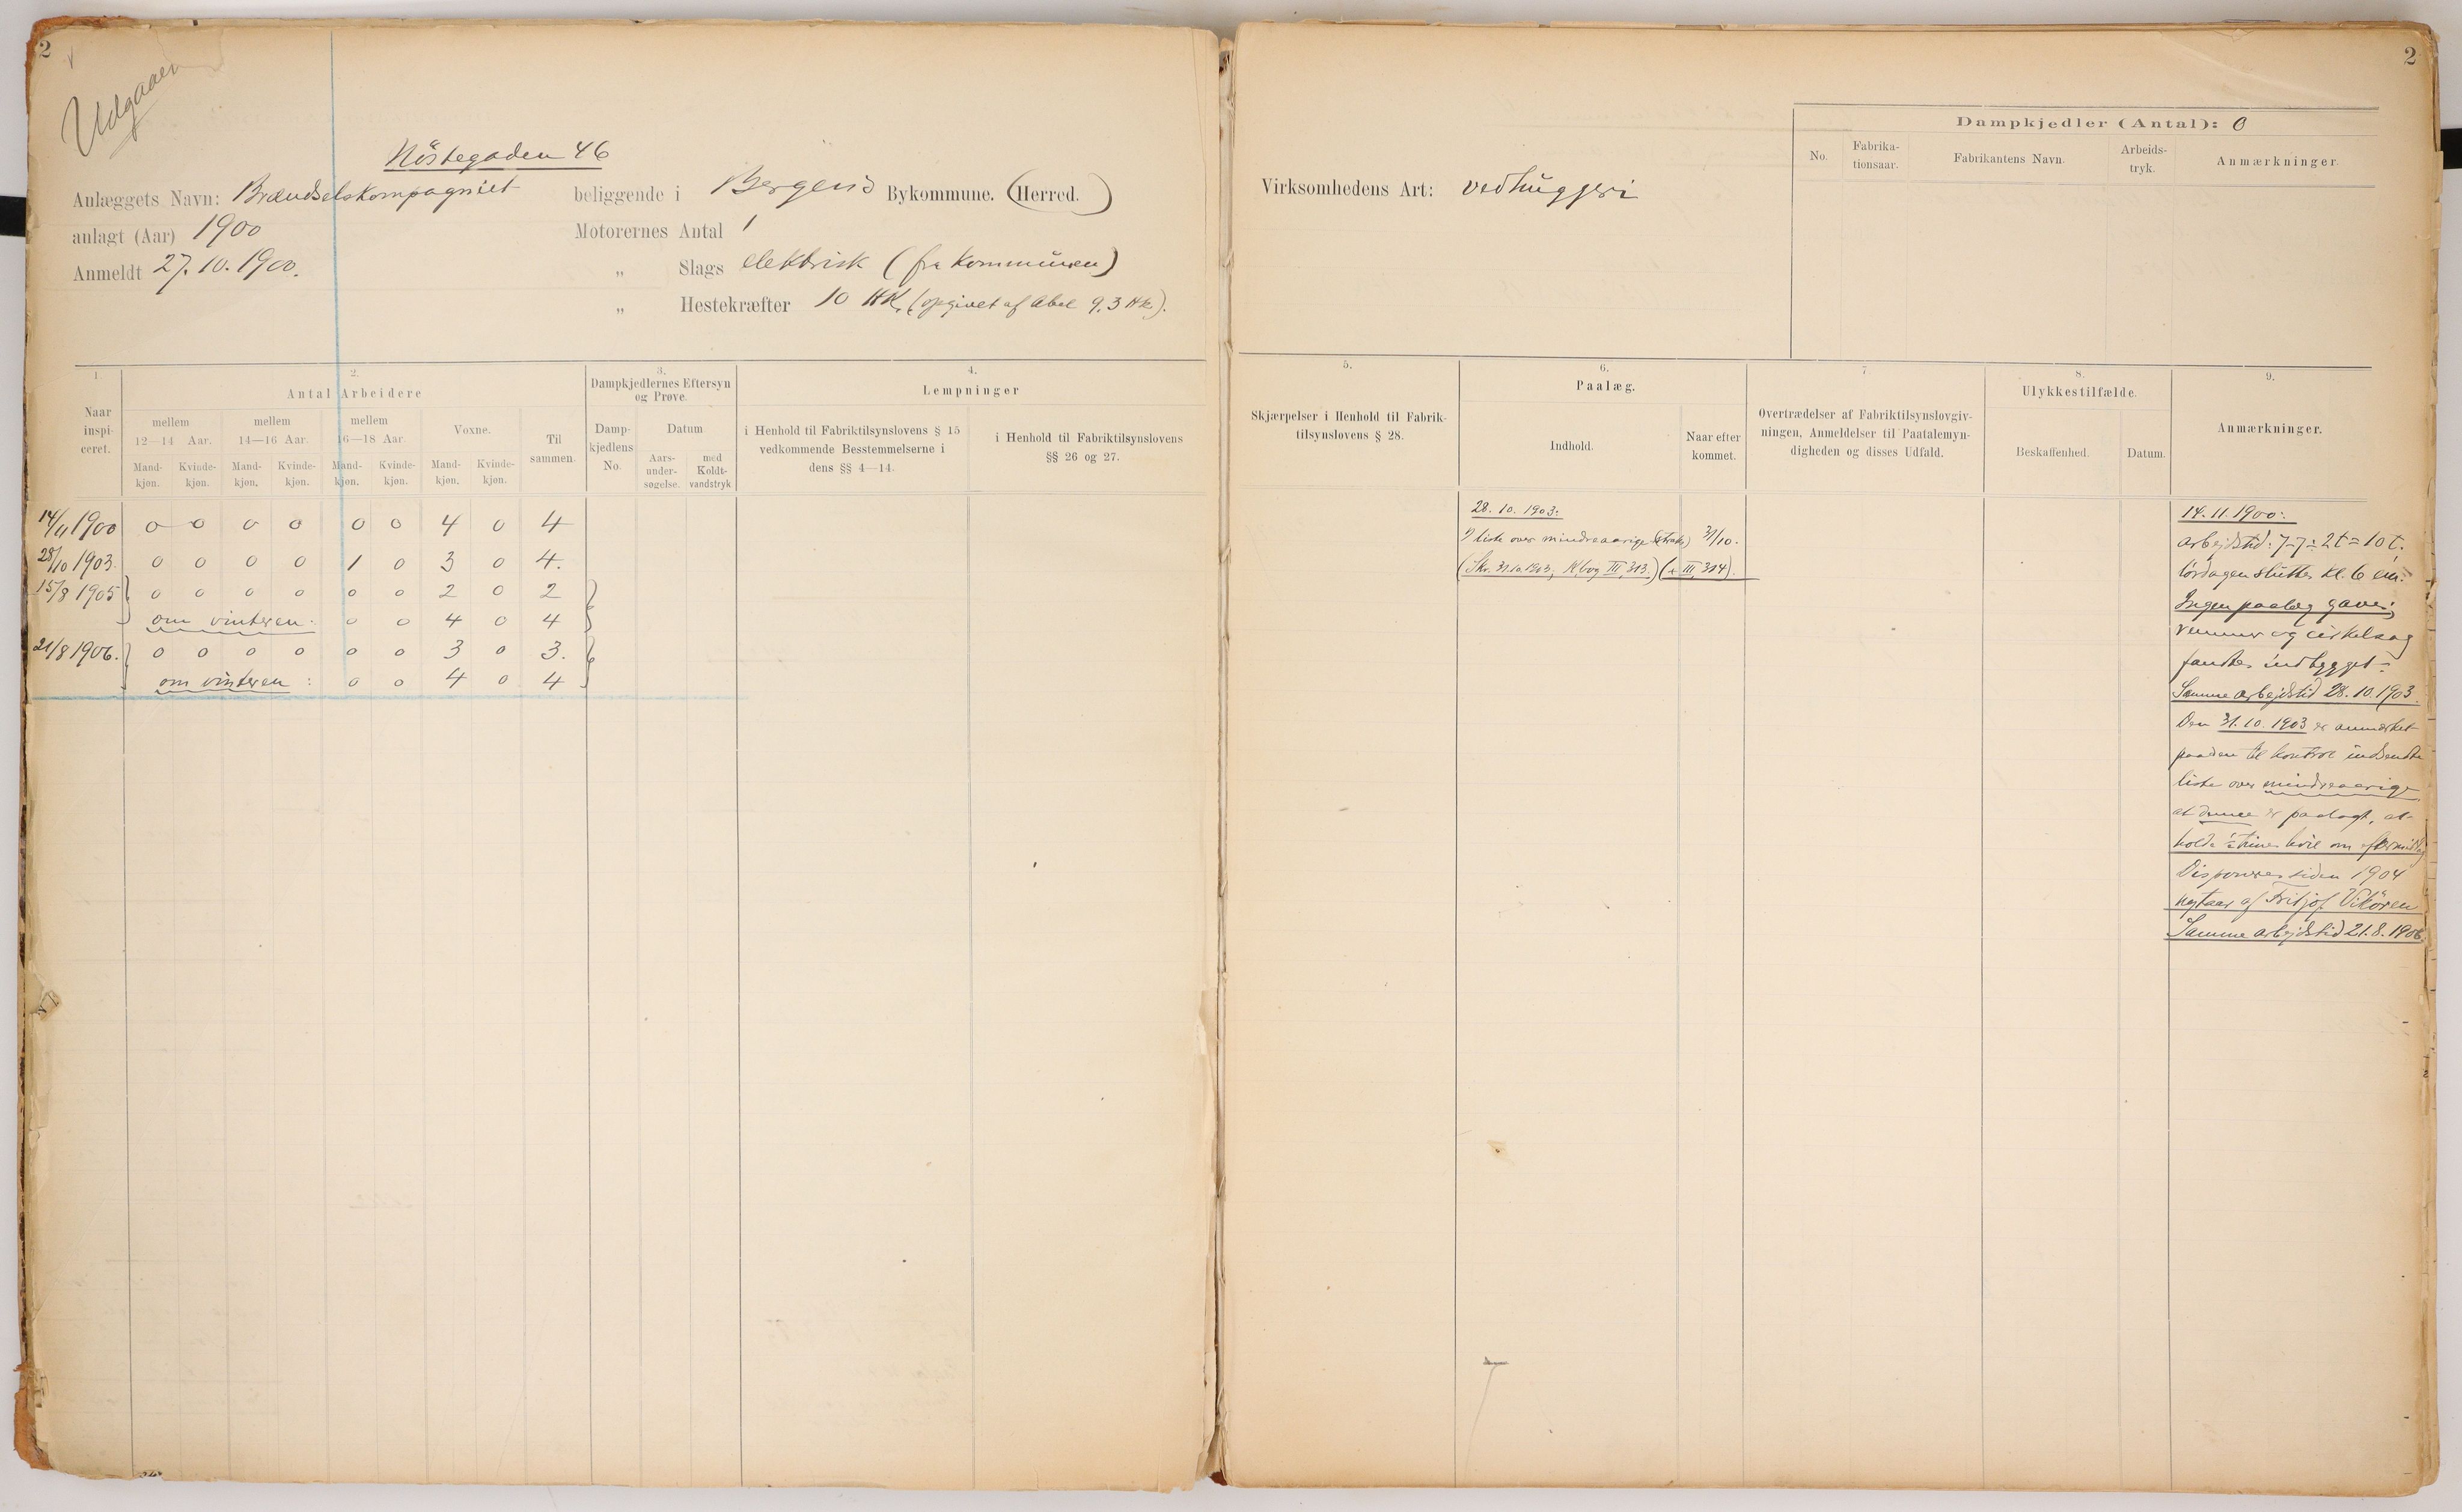 2
Udgaaet
Nöstegaden 46
Anlæggets Navn: Brændselskompagniet beliggende i Bergens Bykommune. (Herred.)
anlagt (Aar) 1900 Motorernes Antal 1
Anmeldt 27.10.1900. „ Slags elektrisk (fra kommunen)
„ Hestekræfter 10 HK. (opgivet af Abel 9.3 HK).
1. 2. 3. 4.
Antal Arbeidere
Dampkjedlernes Eftersyn og Prøve.
Lempninger
Naar inspiceret.
mellem 12—14 Aar.
mellem 14—16 Aar.
mellem 16—18 Aar.
Voxne.
Til sammen.
Mandkjøn. Kvindekjøn. Mandkjøn. Kvindekjøn. Mandkjøn. Kvindekjøn. Mandkjøn. Kvindekjøn.
Dampkjedlens No.
Datum
Aarsundersøgelse.
med Koldtvandstryk
i Henhold til Fabriktilsynslovens § 15
vedkommende Besstemmelserne i
dens §§ 4—14.
i Henhold til Fabriktilsynslovens
§§ 26 og 27.
14/11 1900 0 0 0 0 0 0 4 0 4
28/10 1903. 0 0 0 0 1 0 3 0 4.
15/8 1905 0 0 0 0 0 0 2 0 2
om vinteren. 0 0 4 0 4
21/8 1906. 0 0 0 0 0 0 3 0 3.
om vinteren: 0 0 4 0 4
2
Virksomhedens Art: vedhuggeri
Dampkjedler (Antal): 0
No. Fabrikationsaar. Fabrikantens Navn. Arbeidstryk. Anmærkninger.
5. 6. 7 8. 9.
Skjærpelser i Henhold til Fabrik-
tilsynslovens § 28.
Paalæg.
Indhold.
Naar efter
kommet.
Overtrædelser af Fabriktilsynslovgiv-
ningen, Anmeldelser til Paatalemyn-
digheden og disses Udfald.
Ulykkestilfælde.
Beskaffenhed. Datum.
Anmærkninger.
28.10.1903:
liste over mindreaarige (straks) 31/10.
(Skr. 31.10.1903, K.bog III, 313.) (III, 314).
14.11.1900:
arbejdstid: 7-7 ÷ 2t = 10 t.
lördagen slutter kl. 6 em.
Ingen paalæg gaves;
remmer og cirkelsag
fandtes indbygget.
Samme arbejdstid 28.10.1903.
Den 31.10.1903 er anmerket
paa den til kontrol indsendte
liste over mindreaarige
at denne er paalagt, at
holde times hvil om eftermidd
Disponeres siden 1904
nytaar af Fritjof Vikören
Samme arbejdstid 21.8.1906.